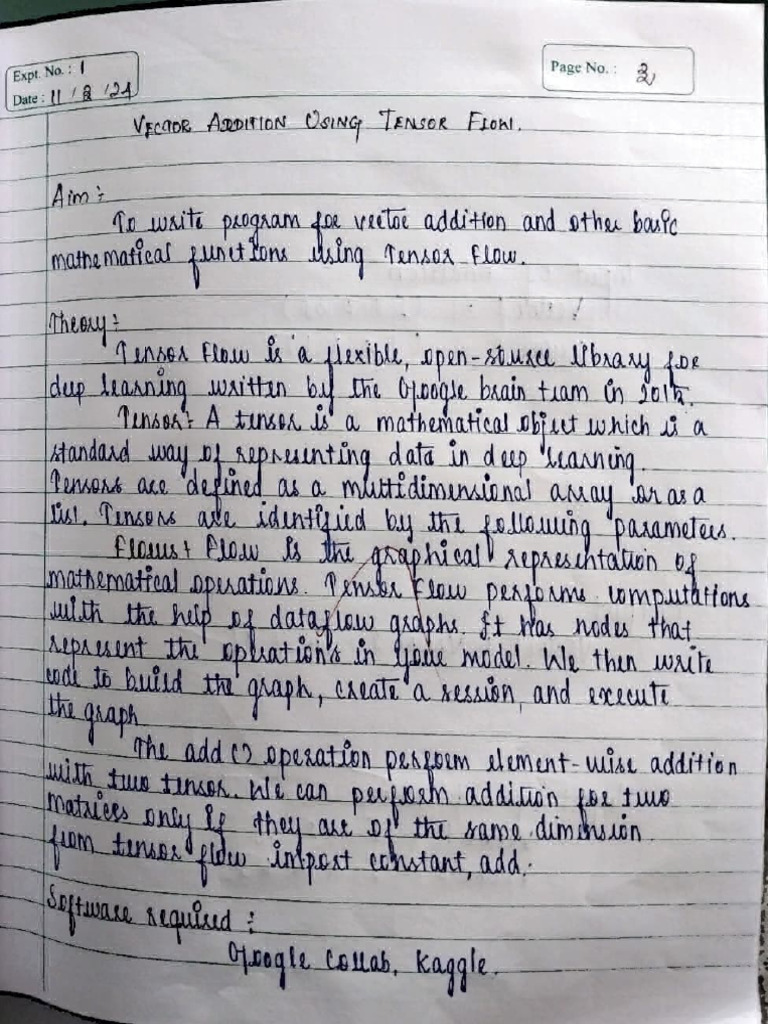 Expt. No. : 1
Date : 11 / 2 / 24
Page No. : 2
VECTOR ADDITION USING TENSOR FLOW.
Aim :
To write program for vector addition and other basic
mathematical functions using Tensor Flow.
Theory :
Tensor Flow is a flexible, open-source library for
deep learning written by the Google brain team in
Tensor : A tensor is a mathematical object which is a
standard way of representing data in deep learning.
Tensors are defined as a multidimensional array or as a
list. Tensors are identified by the following parameters.
Flows : Flow is the graphical representation of
mathematical operations. Tensor Flow performs computations
with the help of dataflow graphs. It has nodes that
represent the operations in your model. We then write
code to build the graph, create a session, and execute
the graph
The add () operation perform element-wise addition
with two tensor. We can perform addition for two
matrices only if they are of the same dimension
from tensor flow import constant, add.
Software required :
Google Collab, Kaggle.